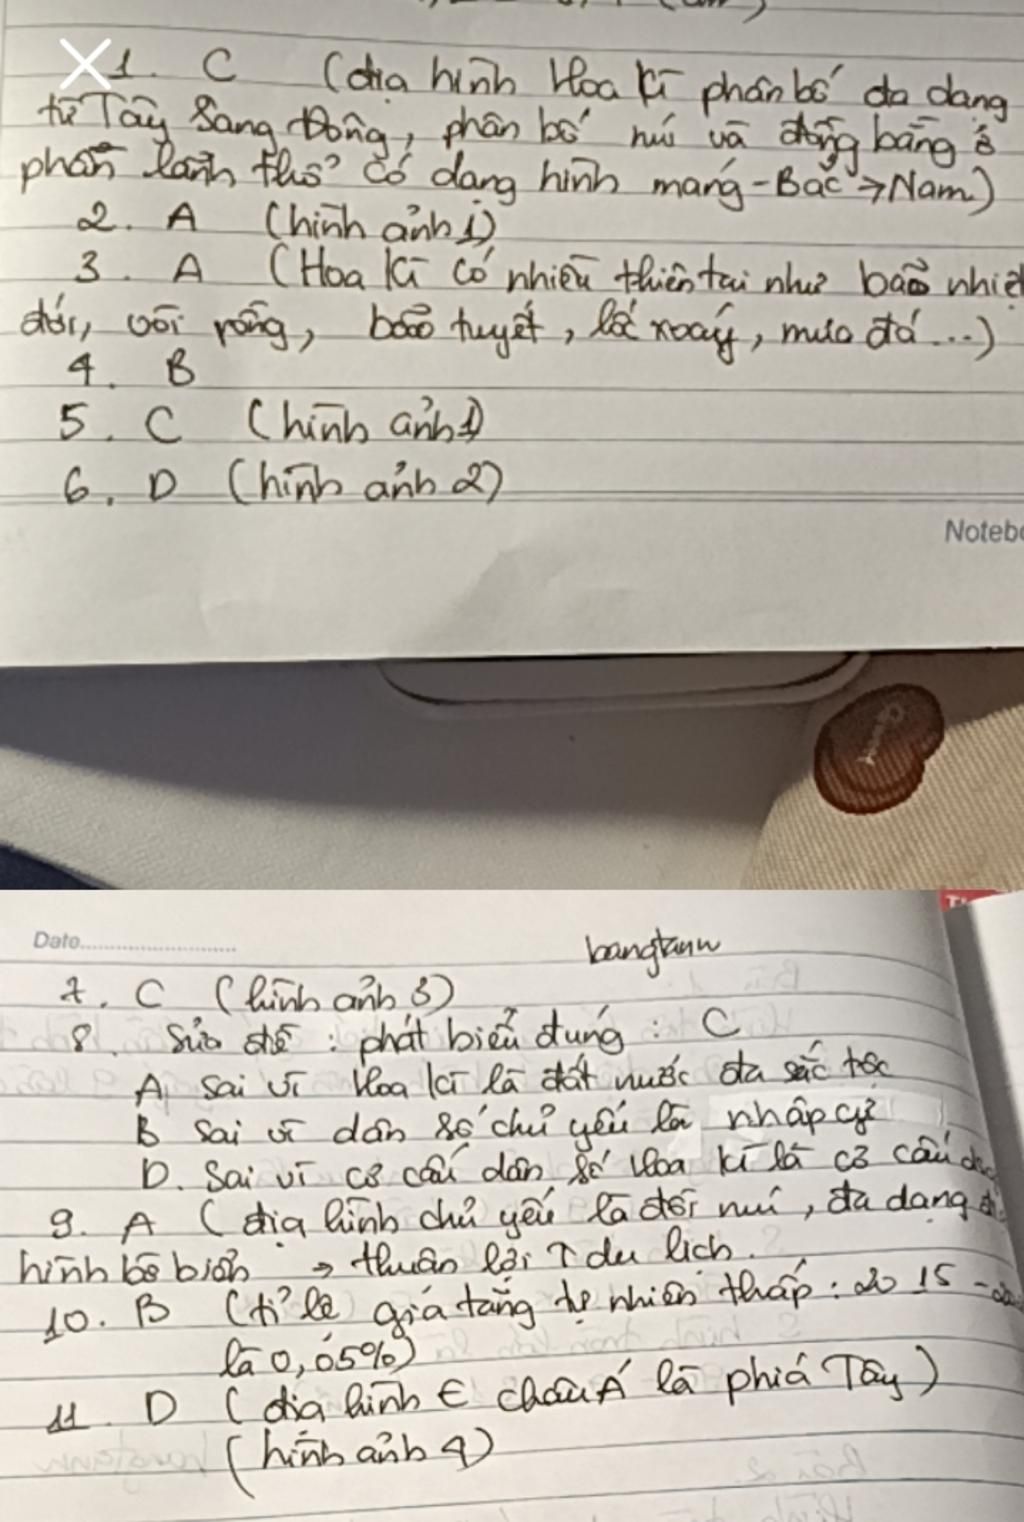 1. C (địa hình Hoa Kì phân bố đa dạng
từ Tây sang Đông, phân bố núi và đồng bằng ở
phần lãnh thổ có dạng hình máng - Bắc → Nam)
2. A (hình ảnh 1)
3. A (Hoa Kì có nhiều thiên tai như bão nhiệt
đới, vòi rồng, bão tuyết, lốc xoáy, mưa đá ...)
4. B
5. C (hình ảnh 1)
6. D (hình ảnh 2)
Notebo
Date
bangtann
7. C (hình ảnh 3)
8. Sửa đề : phát biểu đúng : C
A sai vì Hoa Kì là đất nước đa sắc tộc
B sai vì dân số chủ yếu là nhập cư
D. Sai vì cơ cấu dân số Hoa Kì là cơ cấu
9. A (địa hình chủ yếu là đồi núi, đa dạng
hình bờ biển → thuận lợi ↑ du lịch.
10. B (tỉ lệ gia tăng tự nhiên thấp : 2015 -
là 0,05%)
11. D (địa hình ∈ châu Á là phía Tây)
(hình ảnh 4)